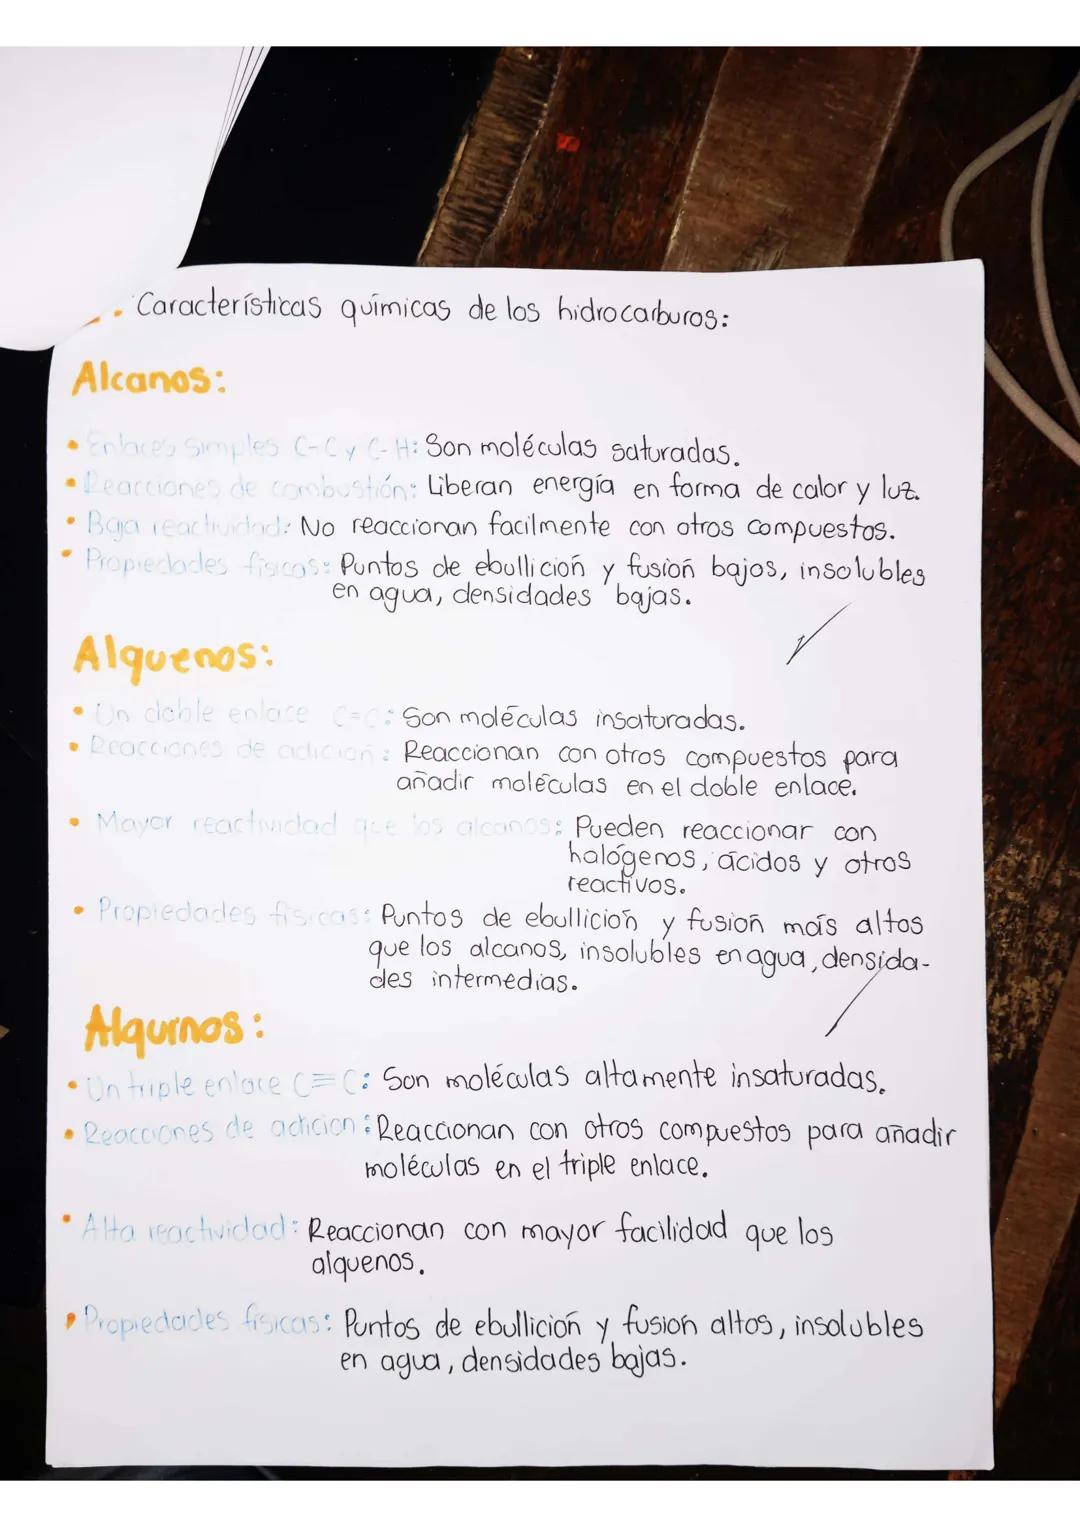 • Características químicas de los hidrocarburos:
Alcanos:
• Enlaces simples C-C y C-H: Son moléculas saturadas.
• Reacciones de combustión: Liberan energía en forma de calor y luz.
• Baja reactividad: No reaccionan facilmente con otros compuestos.
• Propiedades físicas: Puntos de ebullición y fusión bajos, insolubles
en agua, densidades bajas.
Alquenos:
• Un doble enlace C=C: Son moléculas insaturadas.
• Reacciones de adición: Reaccionan con otros compuestos para
añadir moléculas en el doble enlace.
• Mayor reactividad que los alcanos: Pueden reaccionar con
halógenos, ácidos y otros
reactivos.
• Propiedades físicas: Puntos de ebullición y fusión más altos
que los alcanos, insolubles en agua, densida-
des intermedias.
Alquinos:
• Un triple enlace C≡C: Son moléculas altamente insaturadas.
• Reacciones de adicion: Reaccionan con otros compuestos para añadir
moléculas en el triple enlace.
• Alta reactividad: Reaccionan con mayor facilidad que los
alquenos.
• Propiedades físicas: Puntos de ebullición y fusión altos, insolubles
en agua, densidades bajas.